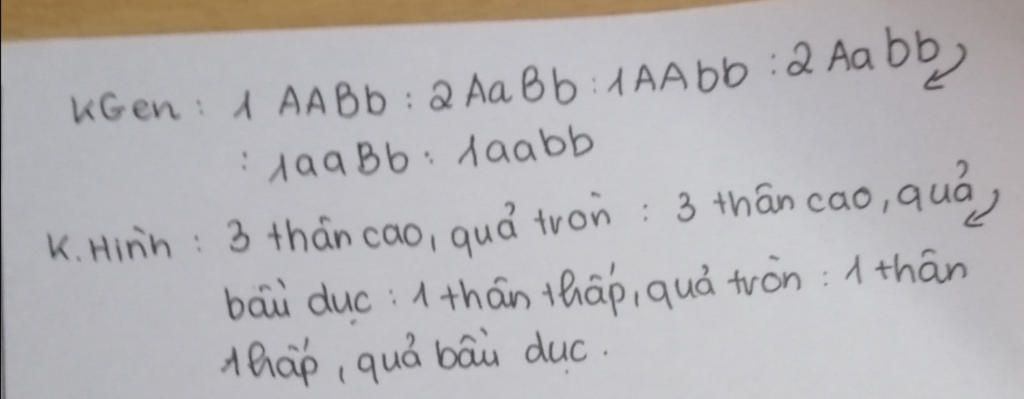 KGen : 1 AABb : 2 AaBb : 1AAbb : 2 Aabb
: 1aaBb : 1aabb
K. Hình : 3 thân cao, quả tròn : 3 thân cao, quả
bầu dục : 1 thân thấp, quả tròn : 1 thân
thấp, quả bầu dục.